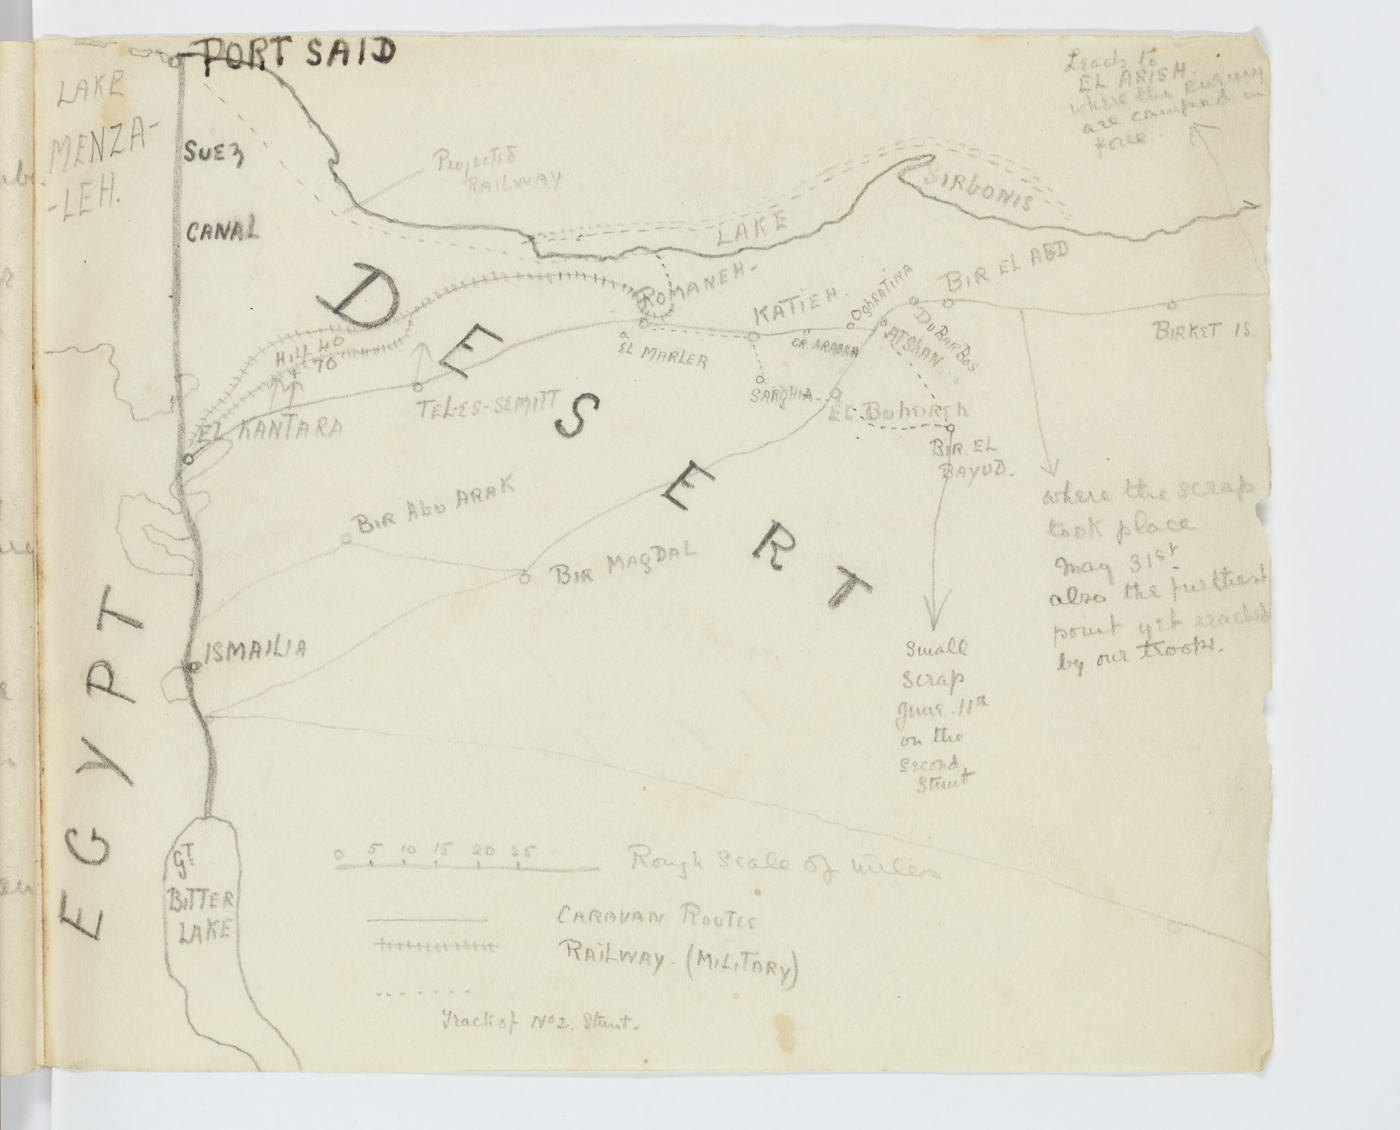 PORT SAID
LAKE
MENZA-
-LEH.
SUEZ
CANAL
Projected
RAILWAY
Leads to
EL ARISH.
where the Enemy
are camped in
force.
LAKE
SIRBONIS
DESERT
ROMANEH-
KATIEH.
OGHRATINA
BIR EL ABD
DUBARBOS
ATSHAN
BIRKET IS.
EL MARLER
ER. ARABAA
HILL 40
70
SARGHIA
EL BUHEIREH
TEL-ES-SEMITT
EL KANTARA
BIR. EL
BAYUD.
BIR ABU ARAK
BIR MAGDAL
where the scrap
took place
May 31st.
also the furthest
point yet reached
by our troops.
EGYPT
ISMAILIA
Small
scrap
June 11th
on the
second
Stunt
GT
BITTER
LAKE
0 5 10 15 20 25
Rough scale of miles
CARAVAN ROUTES
RAILWAY. (MILITARY)
Track of No 2. Stunt.